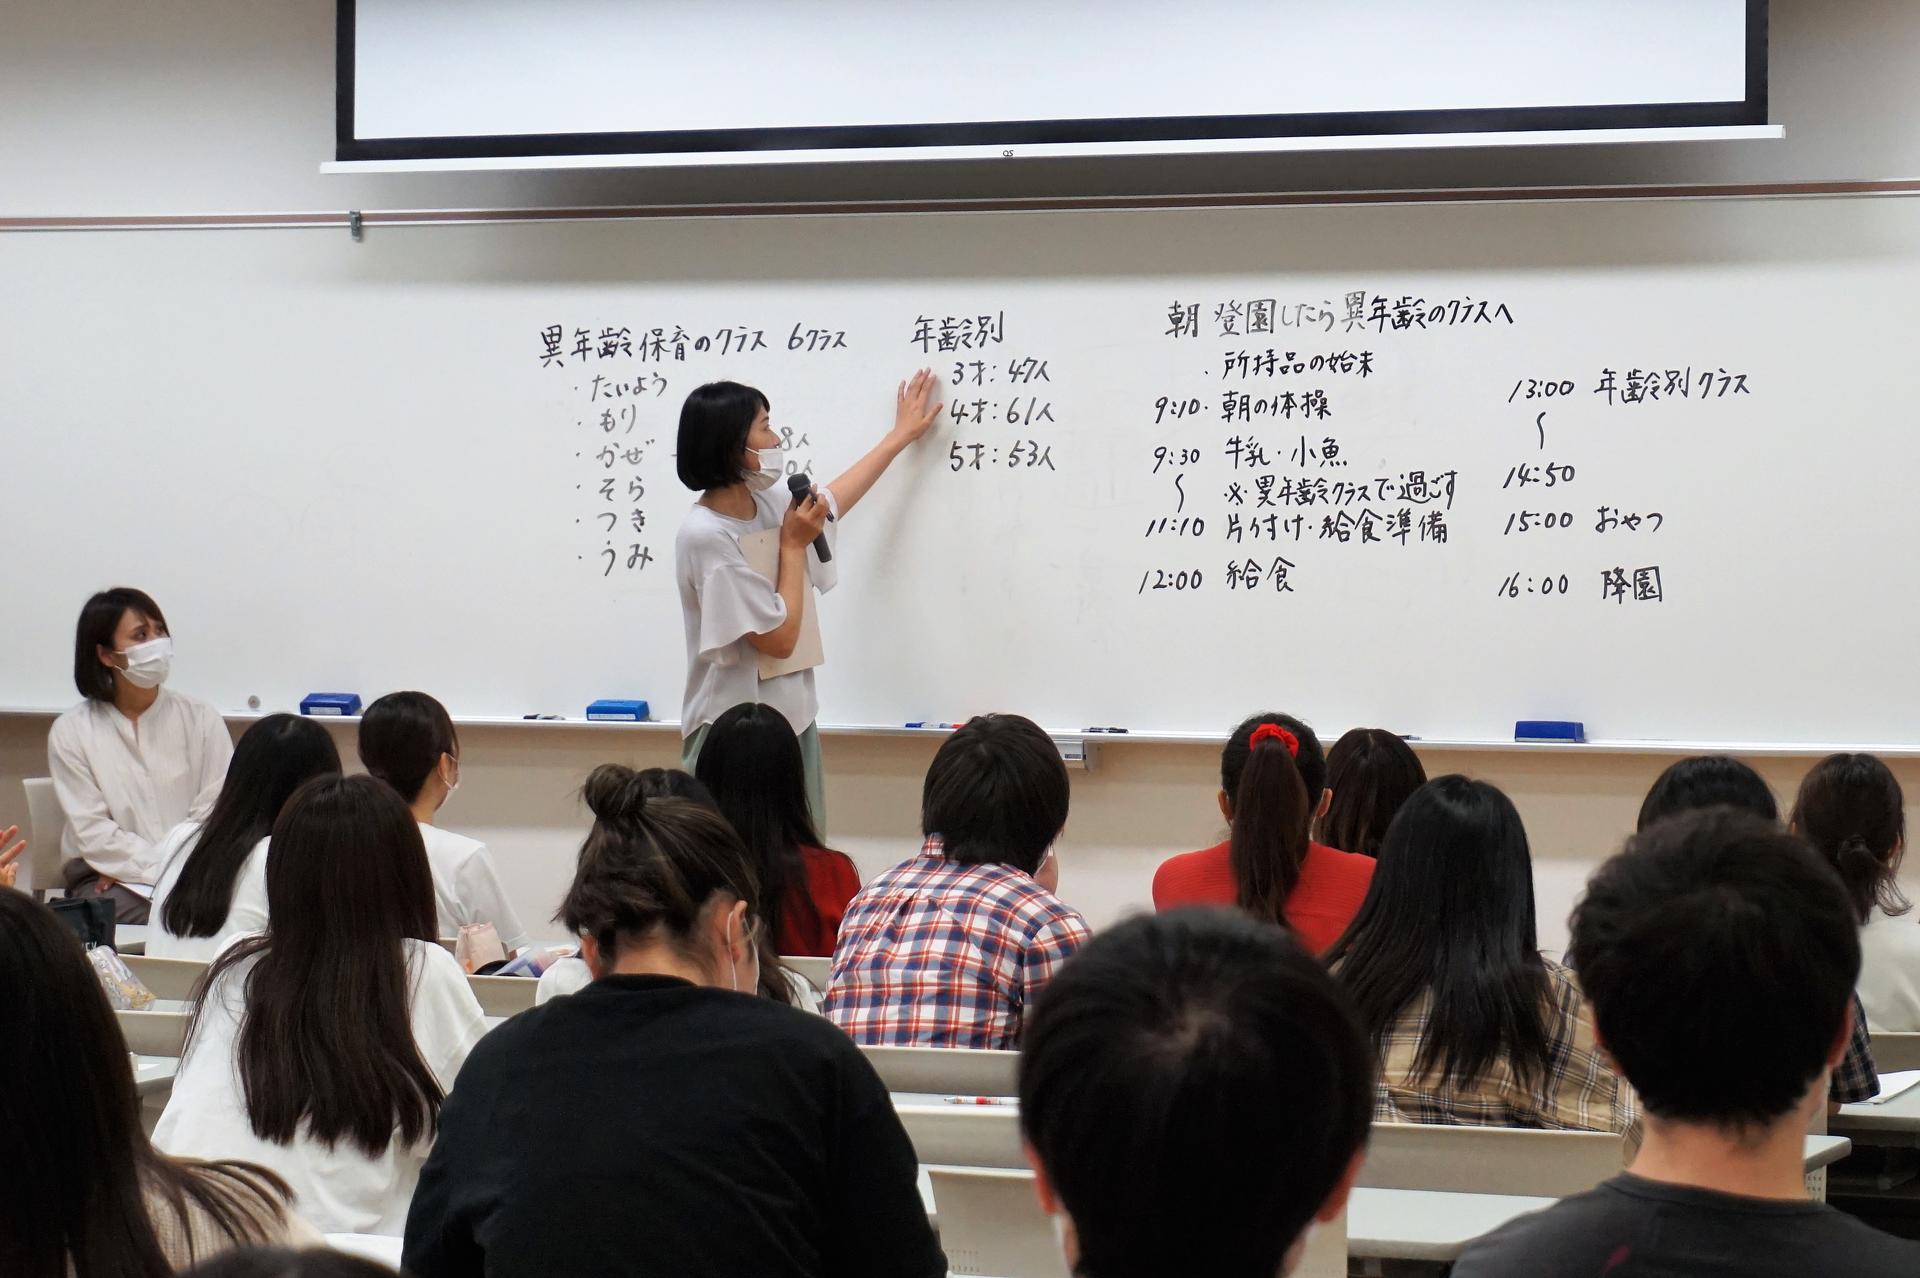 異年齢保育のクラス 6クラス
・たいよう
・もり
・かぜ
・そら
・つき
・うみ
8人
0人
年齢別
3才:47人
4才:61人
5才:53人
朝 登園したら異年齢のクラスへ
・所持品の始末
9:10・朝の体操
9:30 牛乳・小魚
〜 ※異年齢クラスで過ごす
11:10 片付け・給食準備
12:00 給食
13:00 年齢別クラス
〜
14:50
15:00 おやつ
16:00 降園